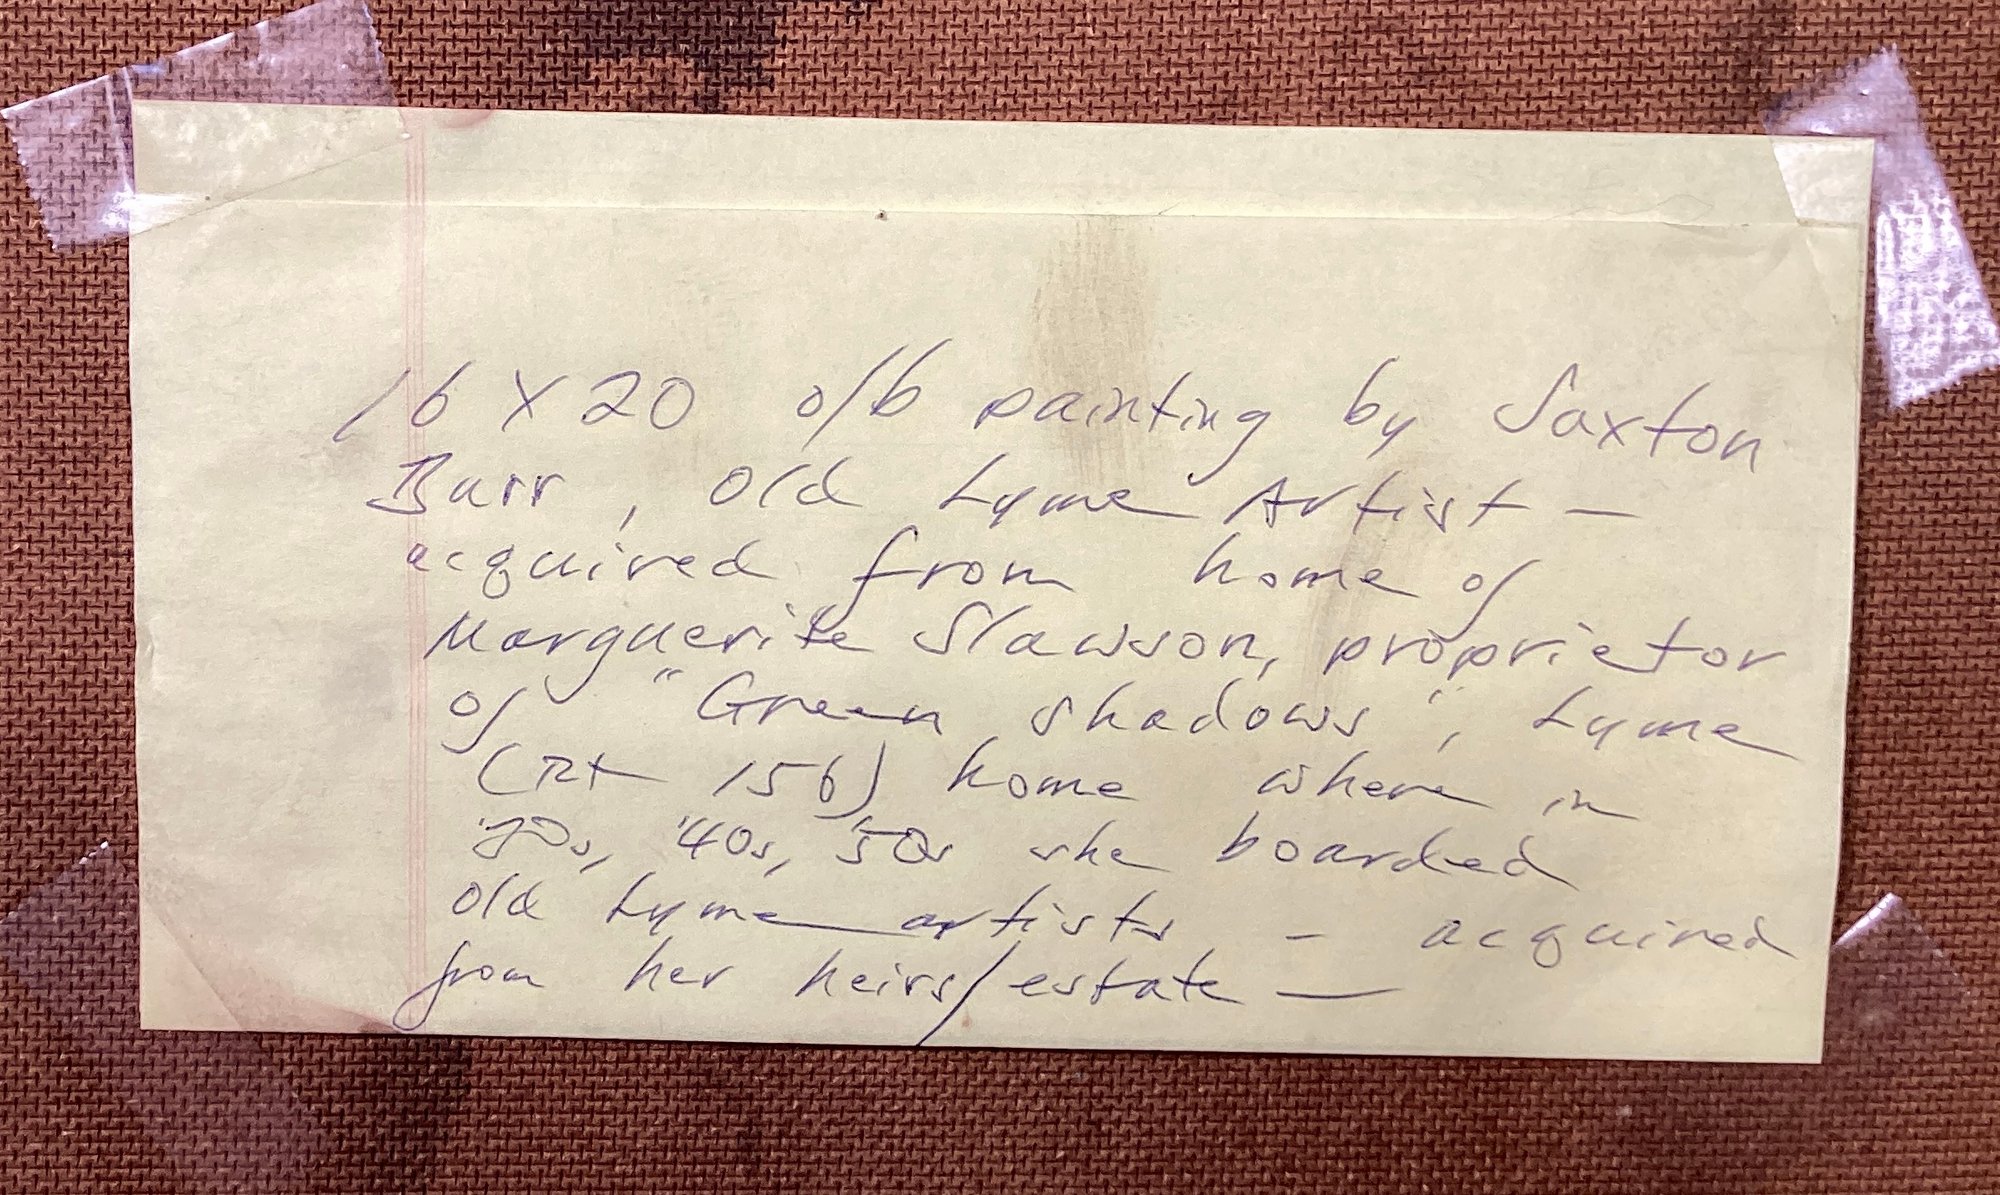 16 X 20 o/b painting by Saxton
Burr, Old Lyme Artist —
acquired from home of
Marguerite Slawson, proprietor
of "Green Shadows", Lyme
(Rt 156) home where in
'30s, '40s, '50s she boarded
old Lyme artists – acquired
from her heirs/estate —